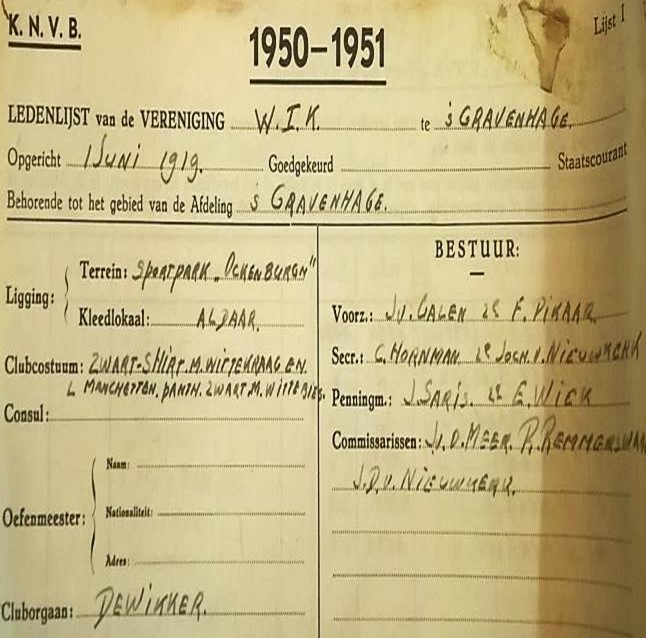 K. N. V. B.
Lijst 1
1950-1951
LEDENLIJST van de VERENIGING W.I.K. te 's GRAVENHAGE.
Opgericht 1 JUNI 1919. Goedgekeurd Staatscourant
Behorende tot het gebied van de Afdeling 's GRAVENHAGE.
Ligging:
Terrein: SPORTPARK „OCKENBURGH"
Kleedlokaal: ALDAAR.
Clubcostuum: ZWART-SHIRT.M.WITTEKRAAG EN.
MANCHETTEN. PANTH. ZWART.M.WITTE BIES.
Consul:
Oefenmeester:
Naam:
Nationaliteit:
Adres:
Cluborgaan: DEWIKKER.
BESTUUR:
Voorz.: J.V. GALEN 2e F. PIKAAR.
Secr.: C. HORNMAN 2e JOCH. V. NIEUWKERK
Penningm.: J. SARIS. 2e E. WICK
Commissarissen: J.V.D. MEER. P. REMMERSWAA
J.D.V. NIEUWKERK.